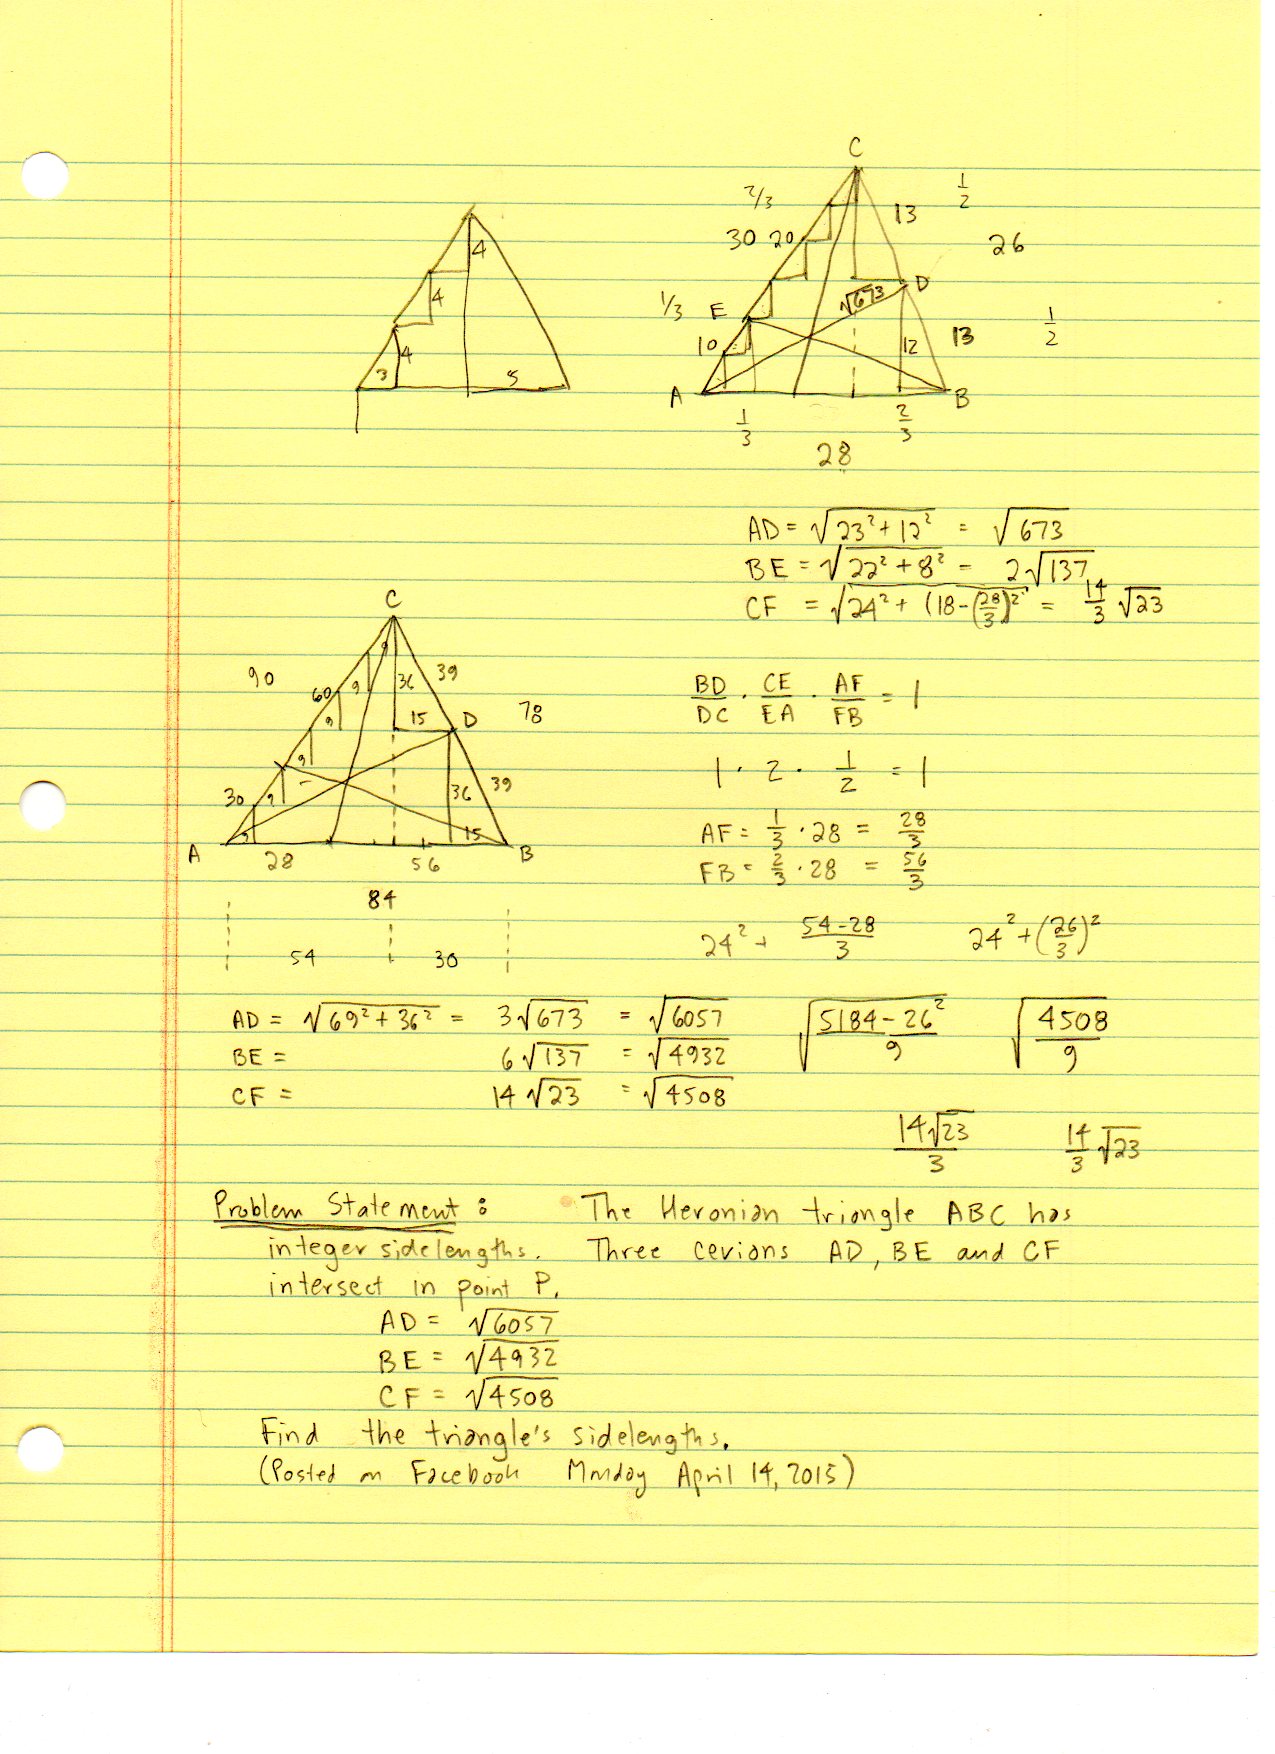 4
4
4
3
5
C
2/3
1/2
13
30 20
26
√673
D
1/3
E
1/2
10
12
13
A
B
1/3
2/3
28
AD = √(23² + 12²) = √673
BE = √(22² + 8²) = 2√137
CF = √(24² + (18 - (28/3))²) = 14/3 √23
C
9
90
39
36
60
9
15
D
78
9
BD/DC · CE/EA · AF/FB = 1
9
1 · 2 · 1/2 = 1
36
39
30
9
9
15
A
B
28
56
AF = 1/3 · 28 = 28/3
FB = 2/3 · 28 = 56/3
84
24² + (54-28)/3
24² + (26/3)²
54
30
AD = √(69² + 36²) = 3√673 = √6057
BE = 6√137 = √4932
CF = 14√23 = √4508
√((5184 - 26²)/9)
√(4508/9)
14√23/3
14/3 √23
Problem Statement: The Heronian triangle ABC has
integer sidelengths. Three cevians AD, BE and CF
intersect in point P.
AD = √6057
BE = √4932
CF = √4508
Find the triangle's sidelengths.
(Posted on Facebook Monday April 14, 2015)